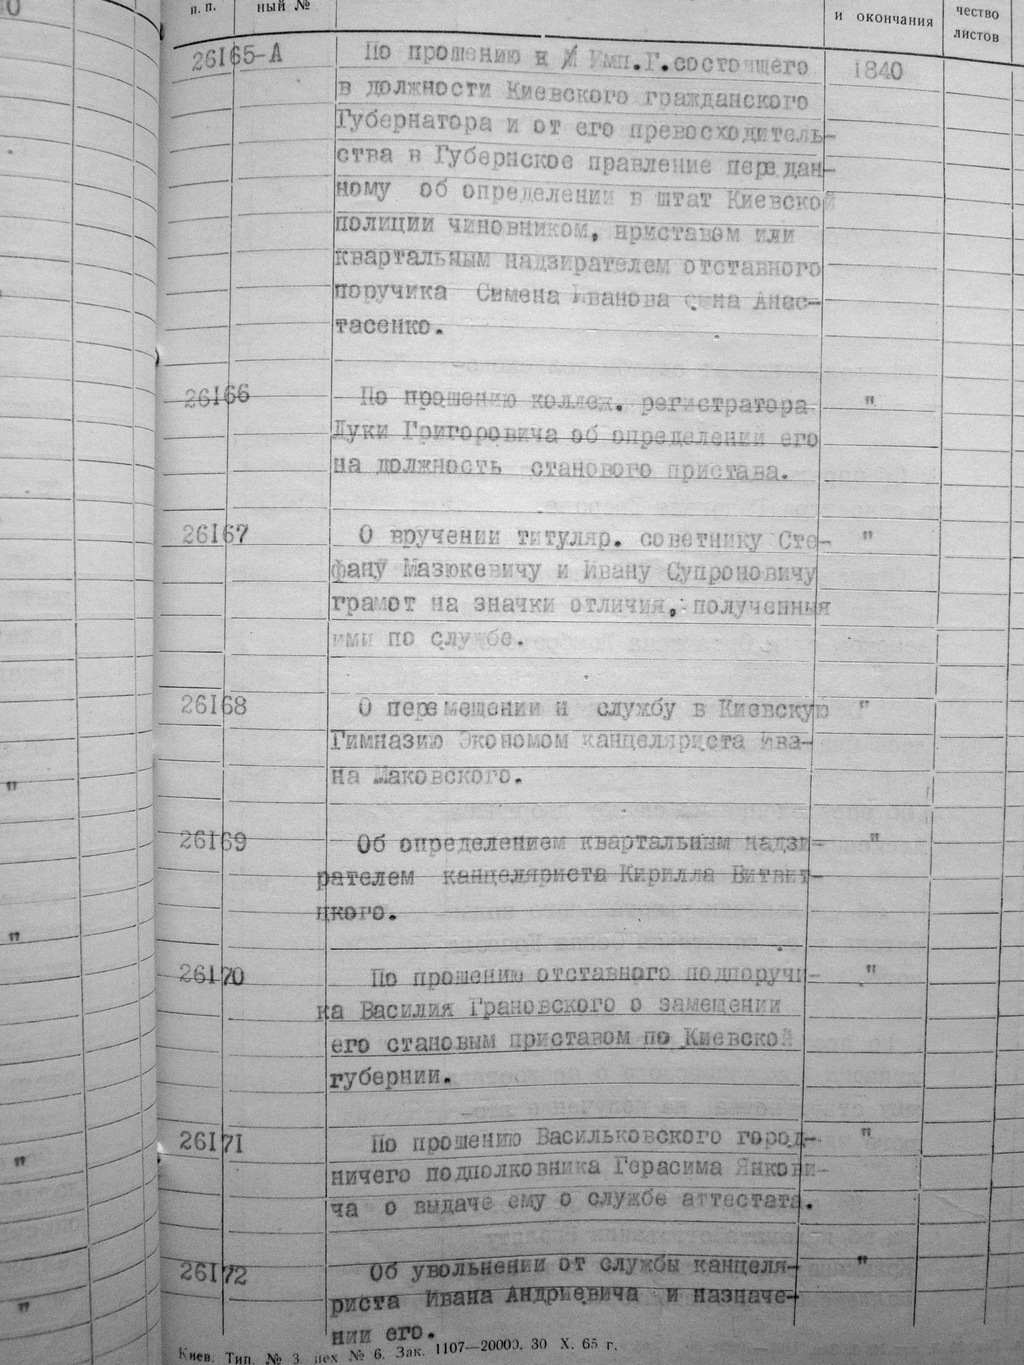 п. п.
ный №
и окончания
чество
листов
26165-А По прошению к Имп.Г.состоящего 1840
в должности Киевского гражданского
Губернатора и от его превосходитель-
ства в Губернское правление передан-
ному об определении в штат Киевской
полиции чиновником, приставом или
квартальным надзирателем отставного
поручика Семена Иванова сына Анас-
тасенко.
26166 По прошению коллеж. регистратора "
Луки Григоровича об определении его
на должность станового пристава.
26167 О вручении титуляр. советнику Сте- "
фану Мазюкевичу и Ивану Супроновичу
грамот на значки отличия, полученныя
ими по службе.
26168 О перемещении н службу в Киевскую "
Гимназию Экономом канцеляриста Ива-
на Маковского.
26169 Об определением квартальным надзи- "
рателем канцеляриста Кирилла Витвит-
цкого.
26170 По прошению отставного подпоручи- "
ка Василия Грановского о замещении
его становым приставом по Киевской
губернии.
26171 По прошению Васильковского город- "
ничего подполковника Герасима Янкови-
ча о выдаче ему о службе аттестата.
26172 Об увольнении от службы канцеля- "
риста Ивана Андриевича и назначе-
нии его.
Киев. Тип. № 3. цех № 6. Зак. 1107—20000. 30 X. 65 г.